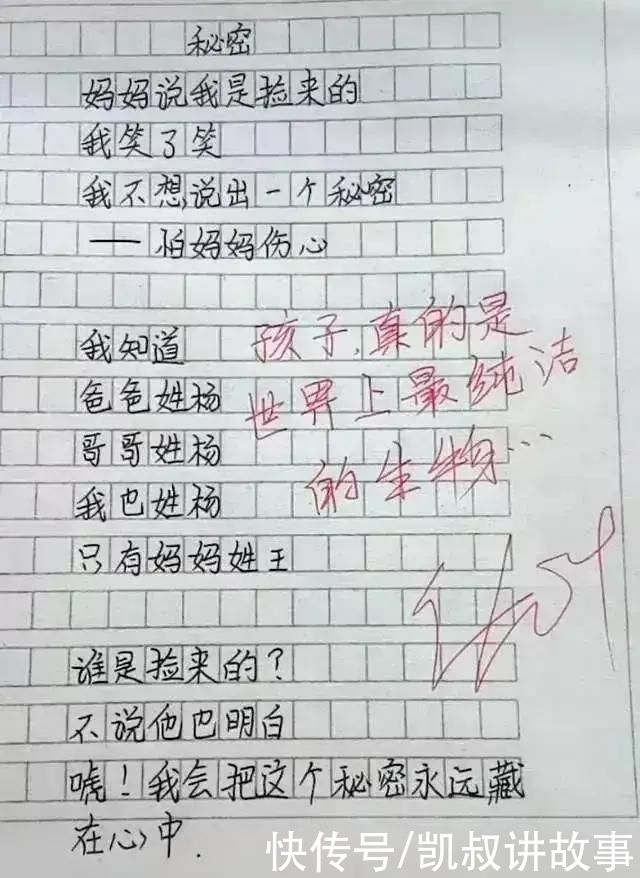 秘密
妈妈说我是捡来的
我笑了笑
我不想说出一个秘密
——怕妈妈伤心
我知道
爸爸姓杨
哥哥姓杨
我也姓杨
只有妈妈姓王
孩子,真的是
世界上最纯洁
的生物…
谁是捡来的?
不说他也明白
唬!我会把这个秘密永远藏
在心中.
快传号/凯叔讲故事